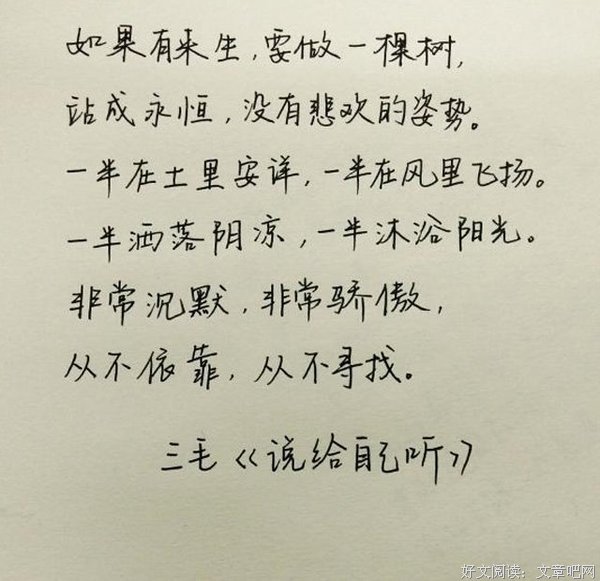 如果有来生，要做一棵树，
站成永恒，没有悲欢的姿势。
一半在土里安详，一半在风里飞扬。
一半洒落阴凉，一半沐浴阳光。
非常沉默，非常骄傲，
从不依靠，从不寻找。
三毛《说给自己听》
好文阅读：文章吧网